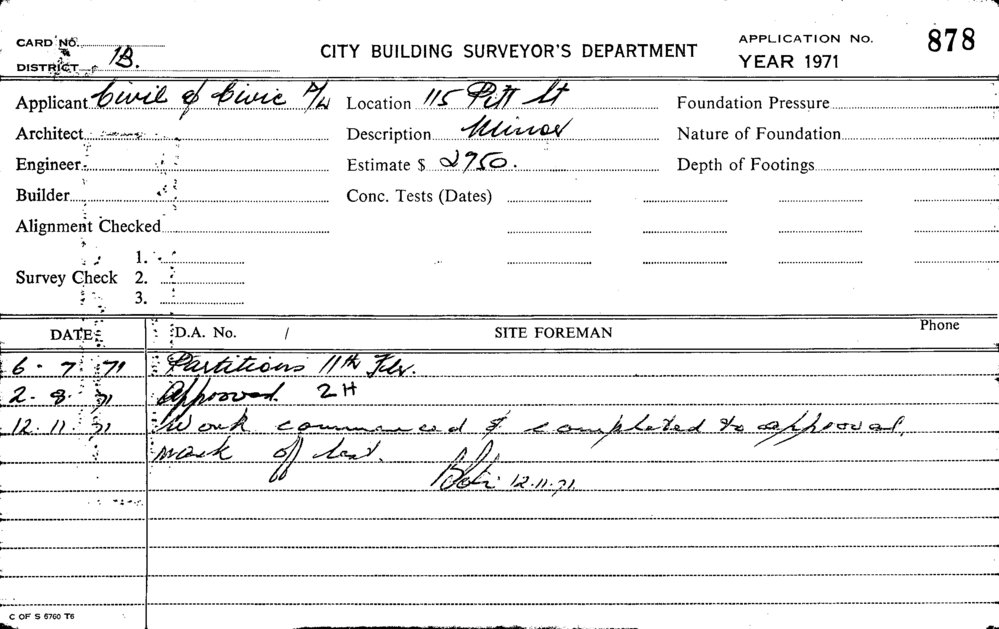 CARD NO.
DISTRICT 1B.
CITY BUILDING SURVEYOR'S DEPARTMENT
APPLICATION No. 878
YEAR 1971
Applicant Civil & Civic P/L Location 115 Pitt St Foundation Pressure
Architect Description Minor Nature of Foundation
Engineer Estimate $ 2950. Depth of Footings
Builder Conc. Tests (Dates)
Alignment Checked
1.
Survey Check 2.
3.
DATE D.A. No. / SITE FOREMAN Phone
6 . 7 . 71 Partitions 11th Flr.
2 . 8 . 71 Approved 2H
12.11.71 Work commenced & completed to approval,
mark off
12.11.71
C OF S 6760 T6